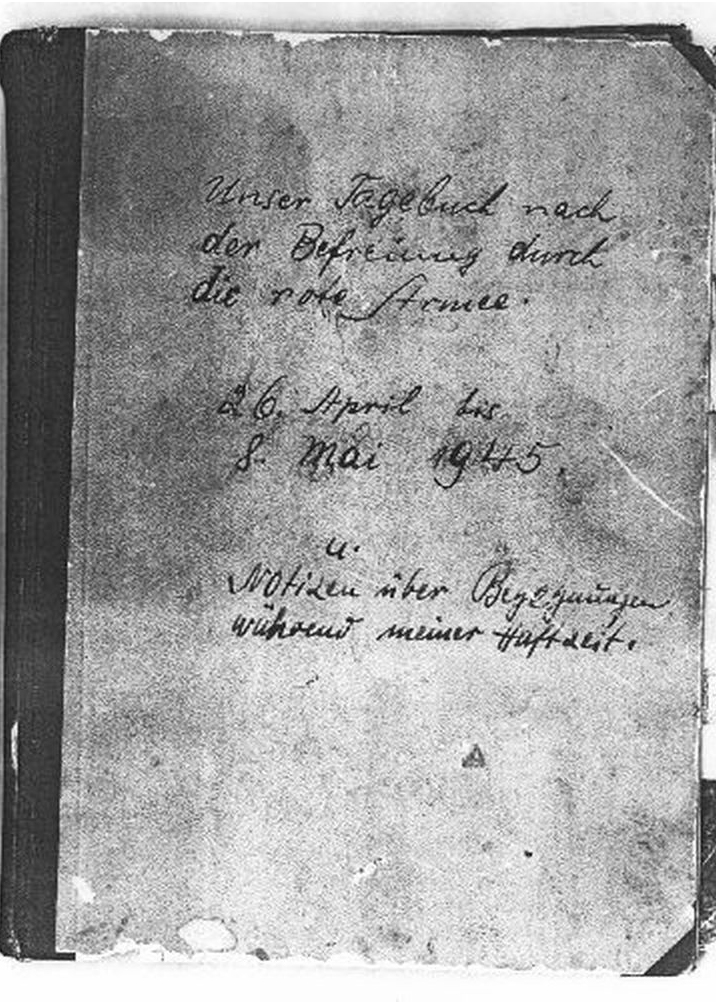 Unser Tagebuch nach
der Befreiung durch
die rote Armee.
26. April bis
8. Mai 1945.
u.
Notizen über Begegnungen
während meiner Haftzeit.